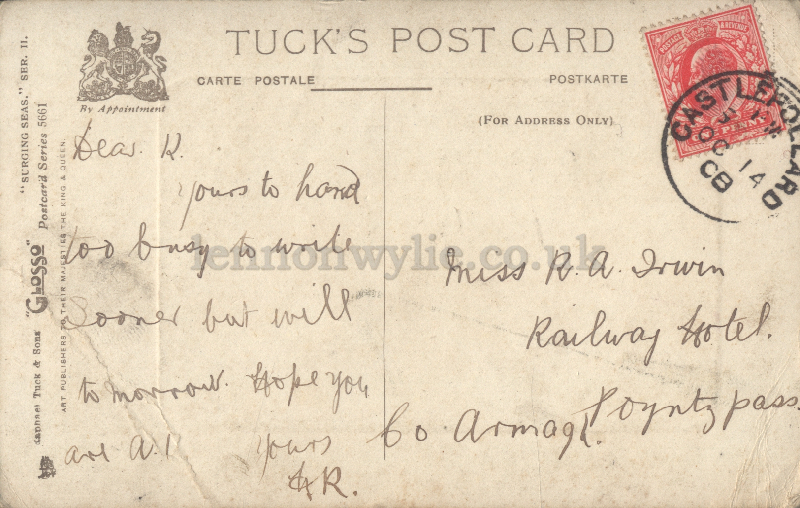 TUCK'S POST CARD
CARTE POSTALE
POSTKARTE
(FOR ADDRESS ONLY)
By Appointment
"SURGING SEAS." SER. II.
Raphael Tuck & Sons "GLOSSO" Postcard Series 5661
ART PUBLISHERS TO THEIR MAJESTIES THE KING & QUEEN.
POSTAGE & REVENUE
ONE PENNY
CASTLEPOLLARD
OC 14
08
Dear R.
Yours to hand
too busy to write
Sooner but will
tomorrow. Hope you
are A.1
Yours
R.
Miss R. A. Irwin
Railway Hotel.
Poyntzpass
Co Armagh.
lennonwylie.co.uk